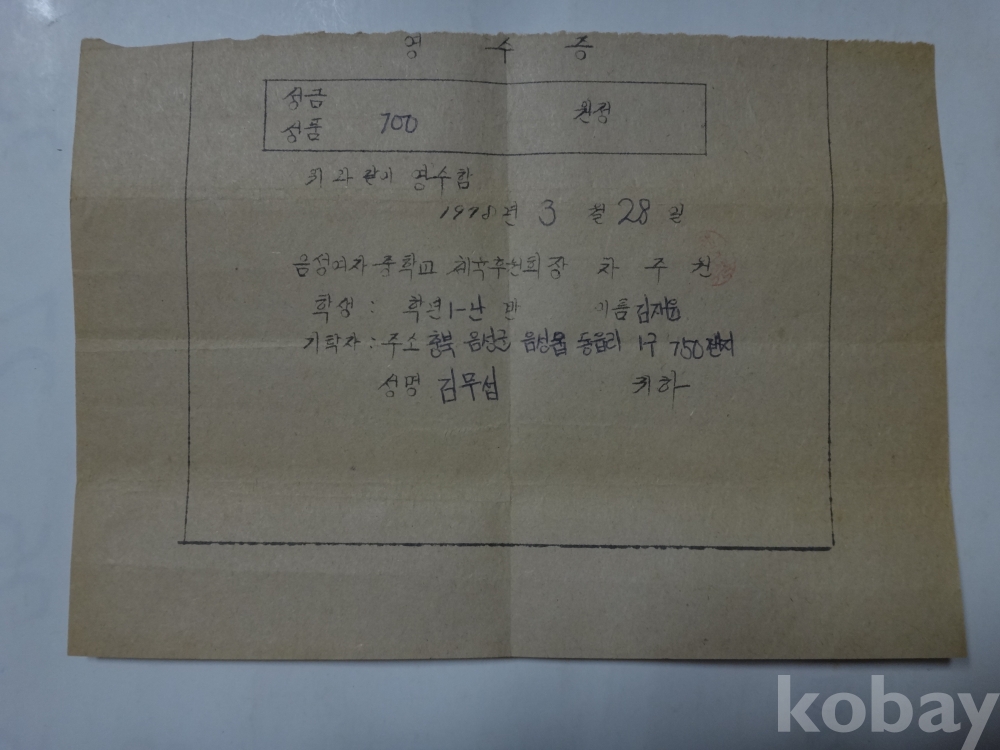 영 수 증
성금
성품 700 원정
위와 같이 영수함
1978년 3월 28일
음성여자중학교 체육후원회장 차주천
학생 : 학년 1-난 반 이름 김재윤
기탁자 : 주소 충북 음성군 음성읍 동읍리 1구 750번지
성명 김무섭 귀하
kobay